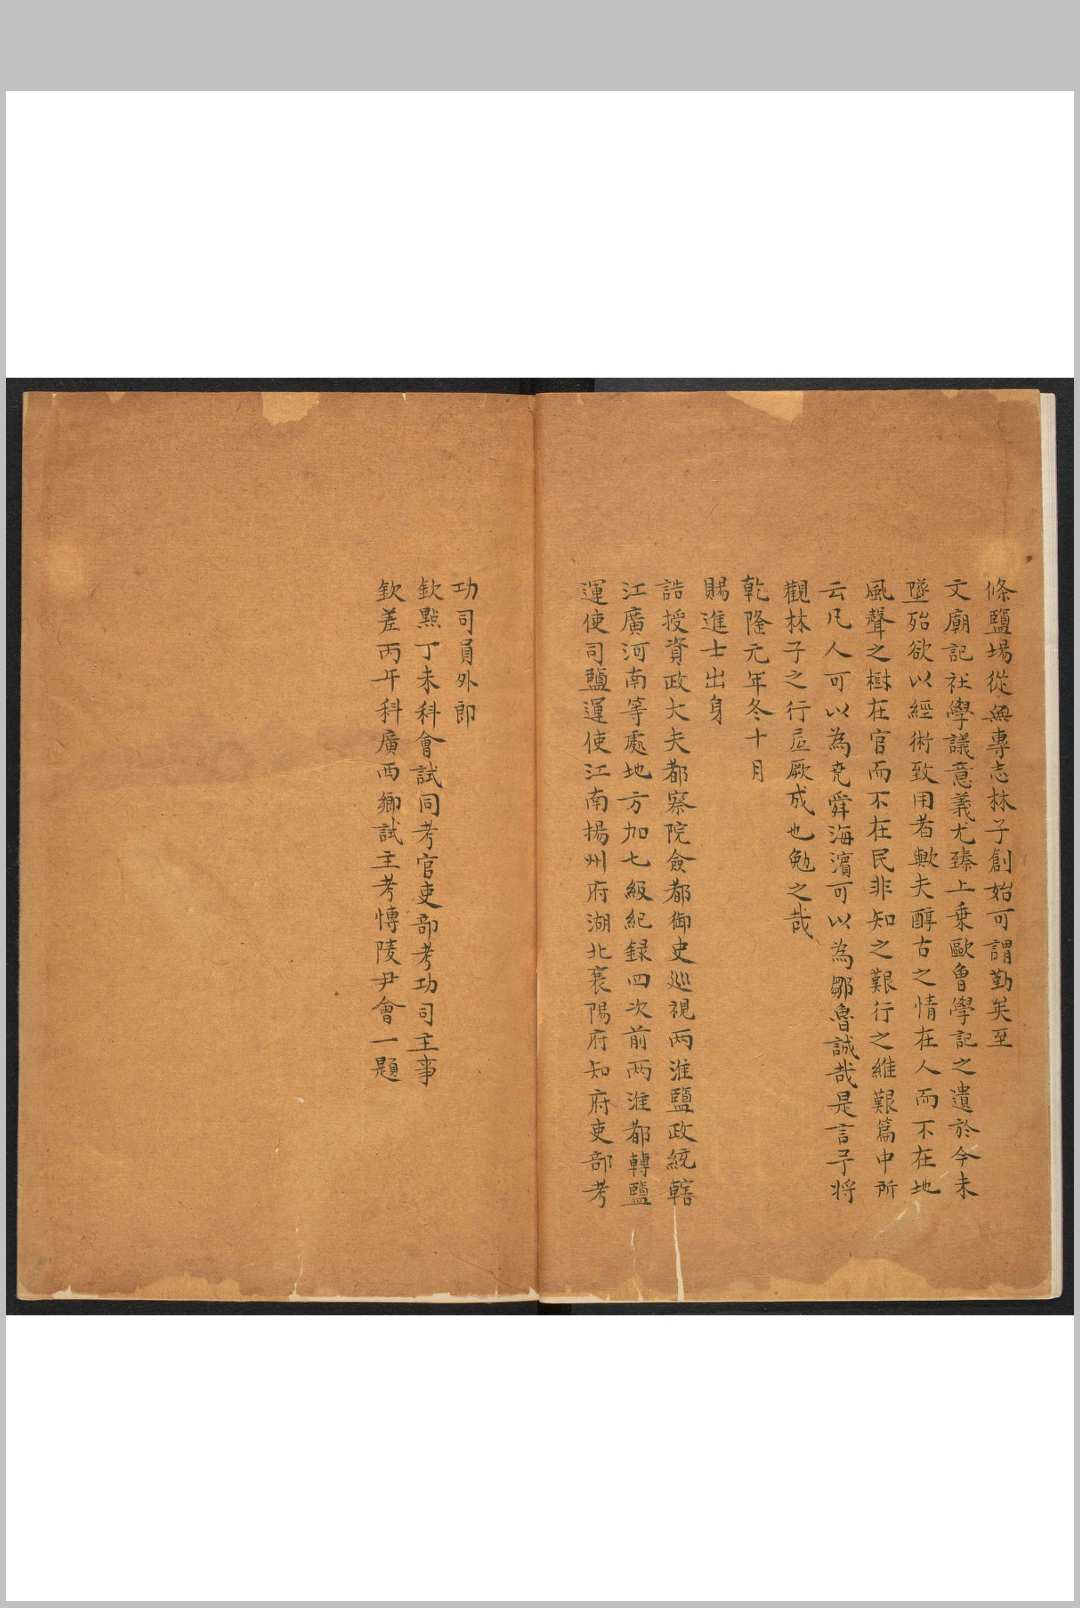 條鹽場從無專志林子創始可謂勤矣至
文廟記社學議意義尤臻上乘歐曾學記之遺於今未
墜殆欲以經術致用者歟夫醇古之情在人而不在地
風聲之樹在官而不在民非知之艱行之維艱篇中所
云凡人可以為堯舜海濱可以為鄒魯誠哉是言予將
觀林子之行底厥成也勉之哉
乾隆元年冬十月
賜進士出身
誥授資政大夫都察院僉都御史巡視兩淮鹽政統轄
江廣河南等處地方加七級紀録四次前兩淮都轉鹽
運使司鹽運使江南揚州府湖北襄陽府知府吏部考
功司員外郎
欽點丁未科會試同考官吏部考功司主事
欽差丙午科廣西鄉試主考愽陵尹會一題